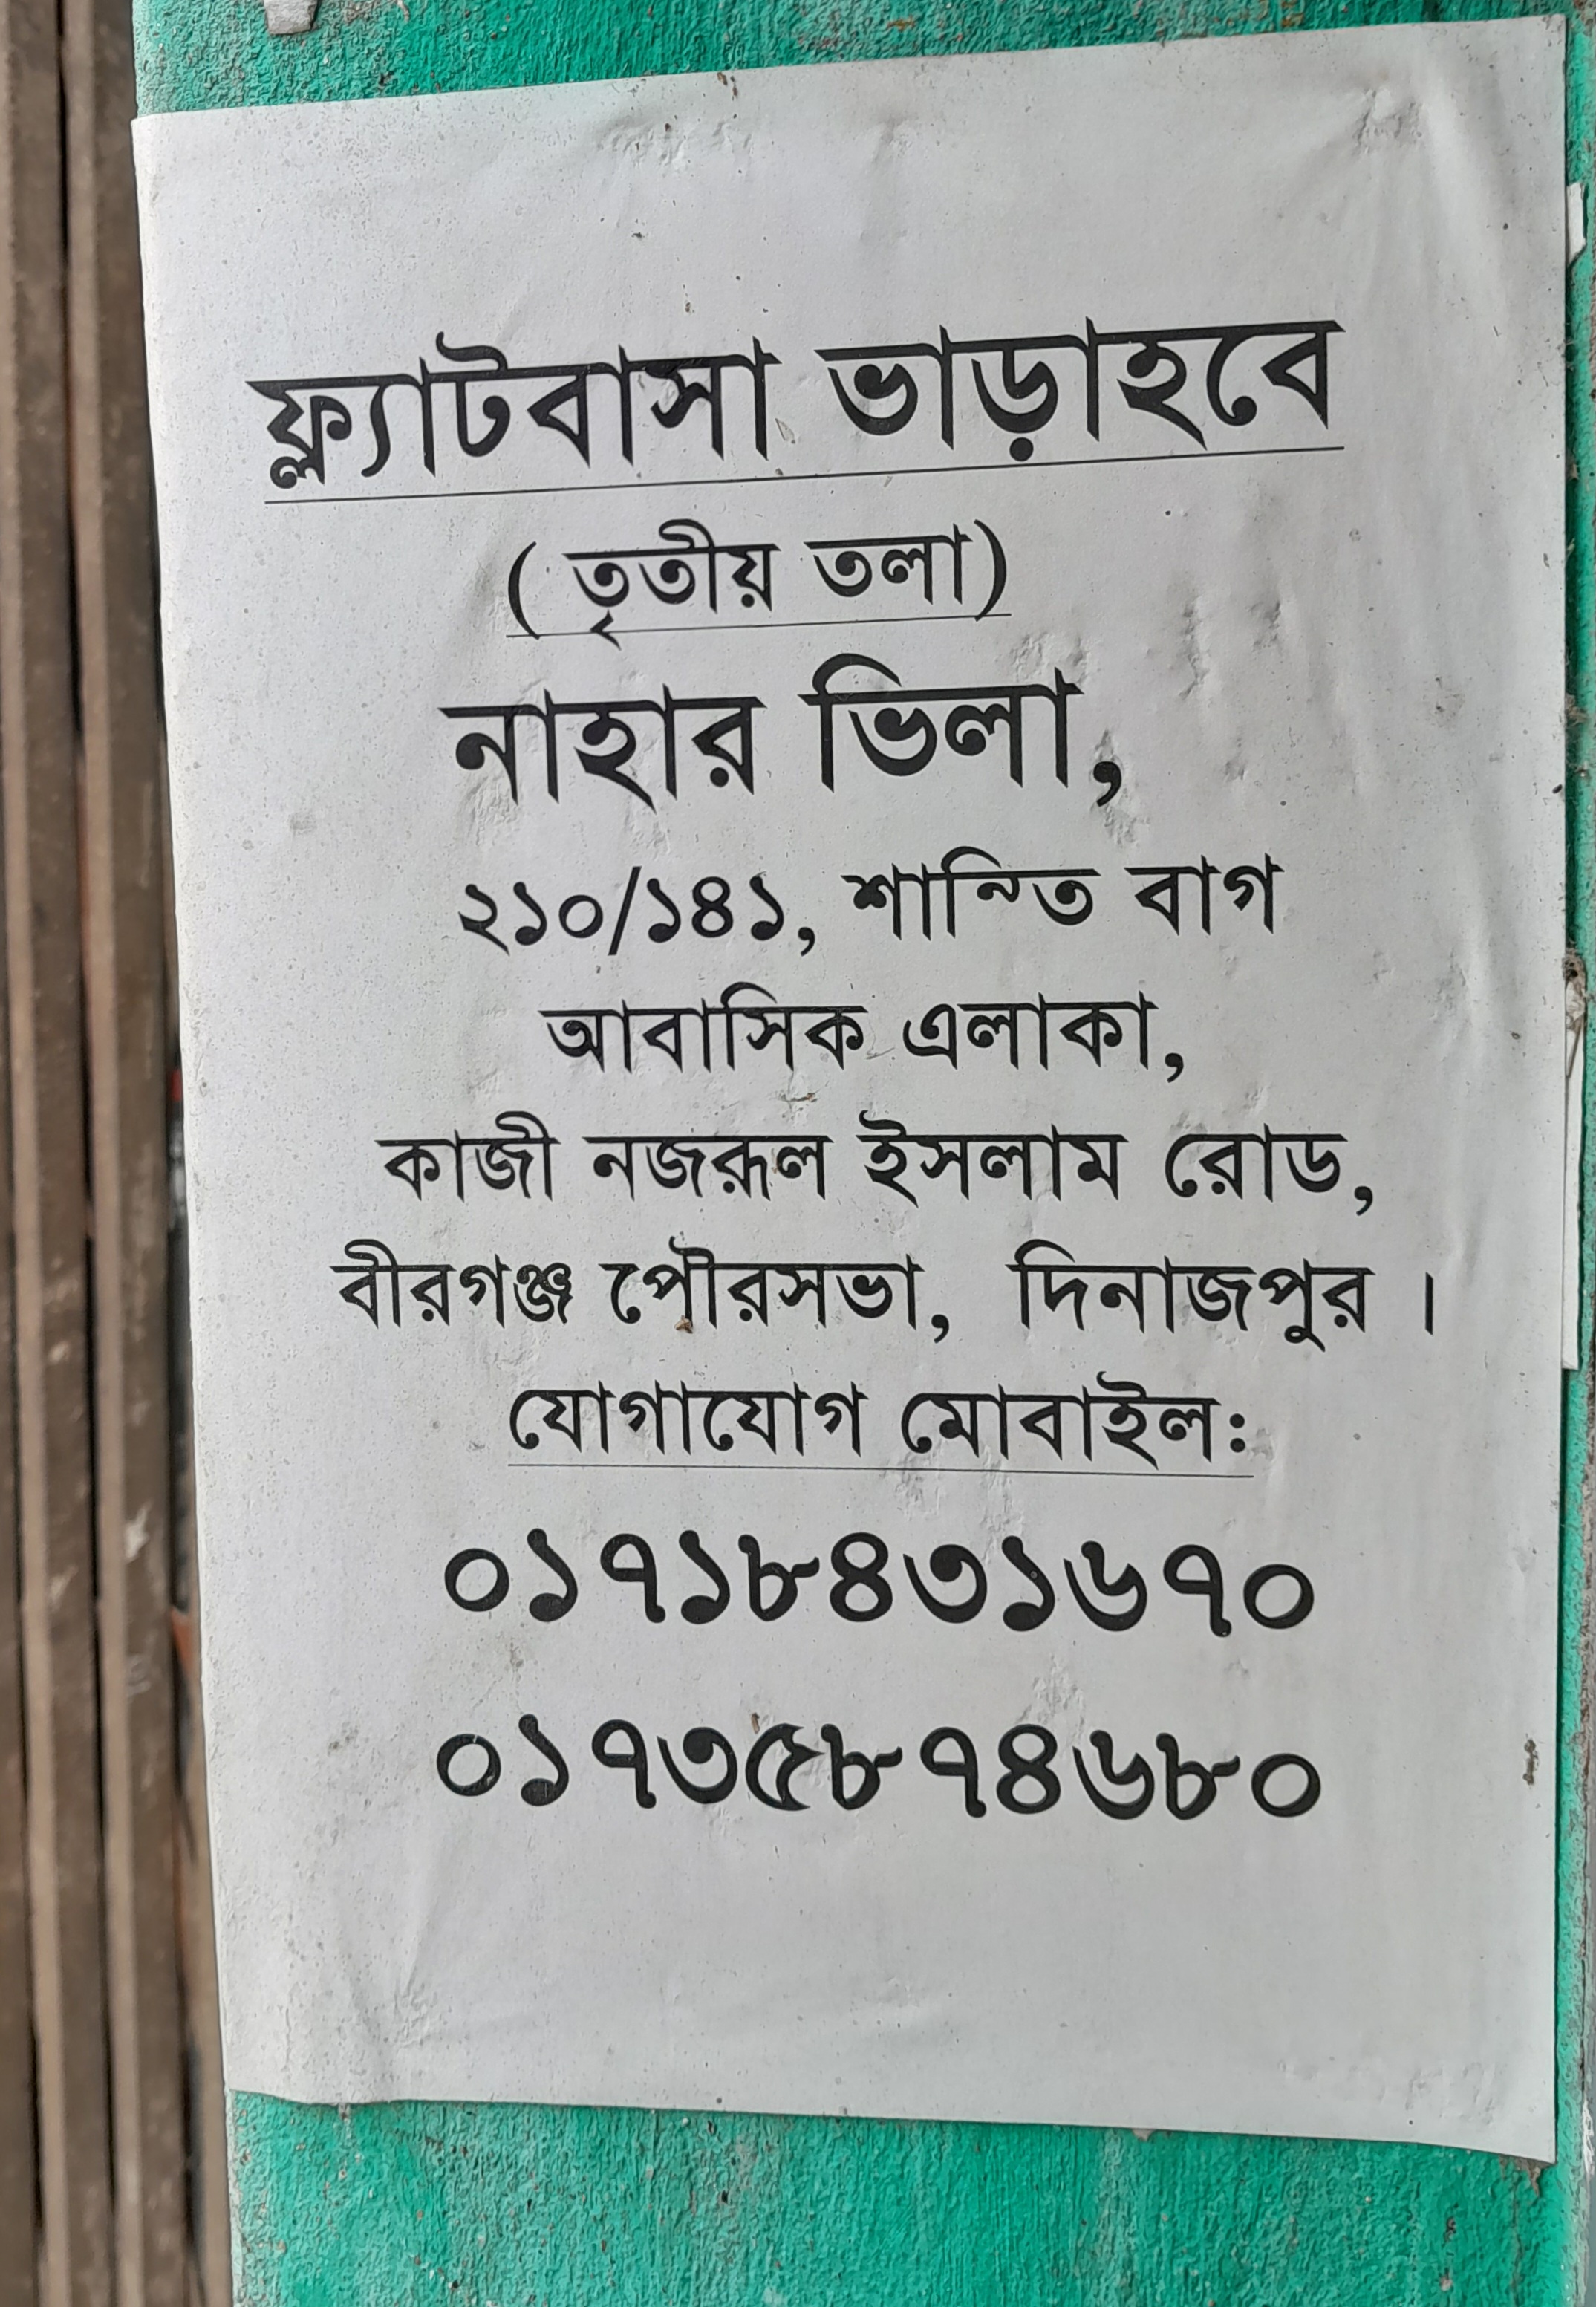 ফ্ল্যাটবাসা ভাড়াহবে
( তৃতীয় তলা)
নাহার ভিলা,
২১০/১৪১, শান্তি বাগ
আবাসিক এলাকা,
কাজী নজরূল ইসলাম রোড,
বীরগঞ্জ পৌরসভা, দিনাজপুর ।
যোগাযোগ মোবাইল:
০১৭১৮৪৩১৬৭০
০১৭৩৫৮৭৪৬৮০